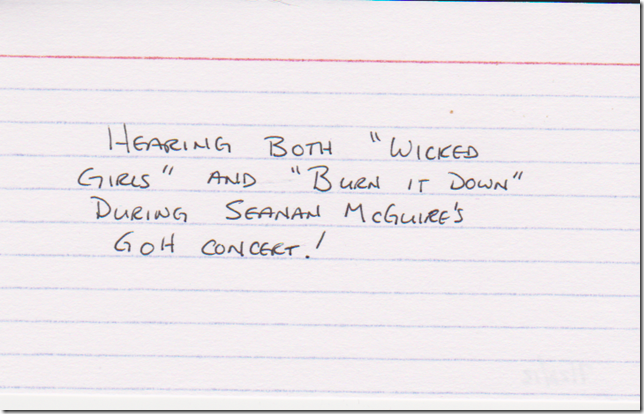 HEARING BOTH "WICKED
GIRLS" AND "BURN IT DOWN"
DURING SEANAN MCGUIRE'S
GOH CONCERT!